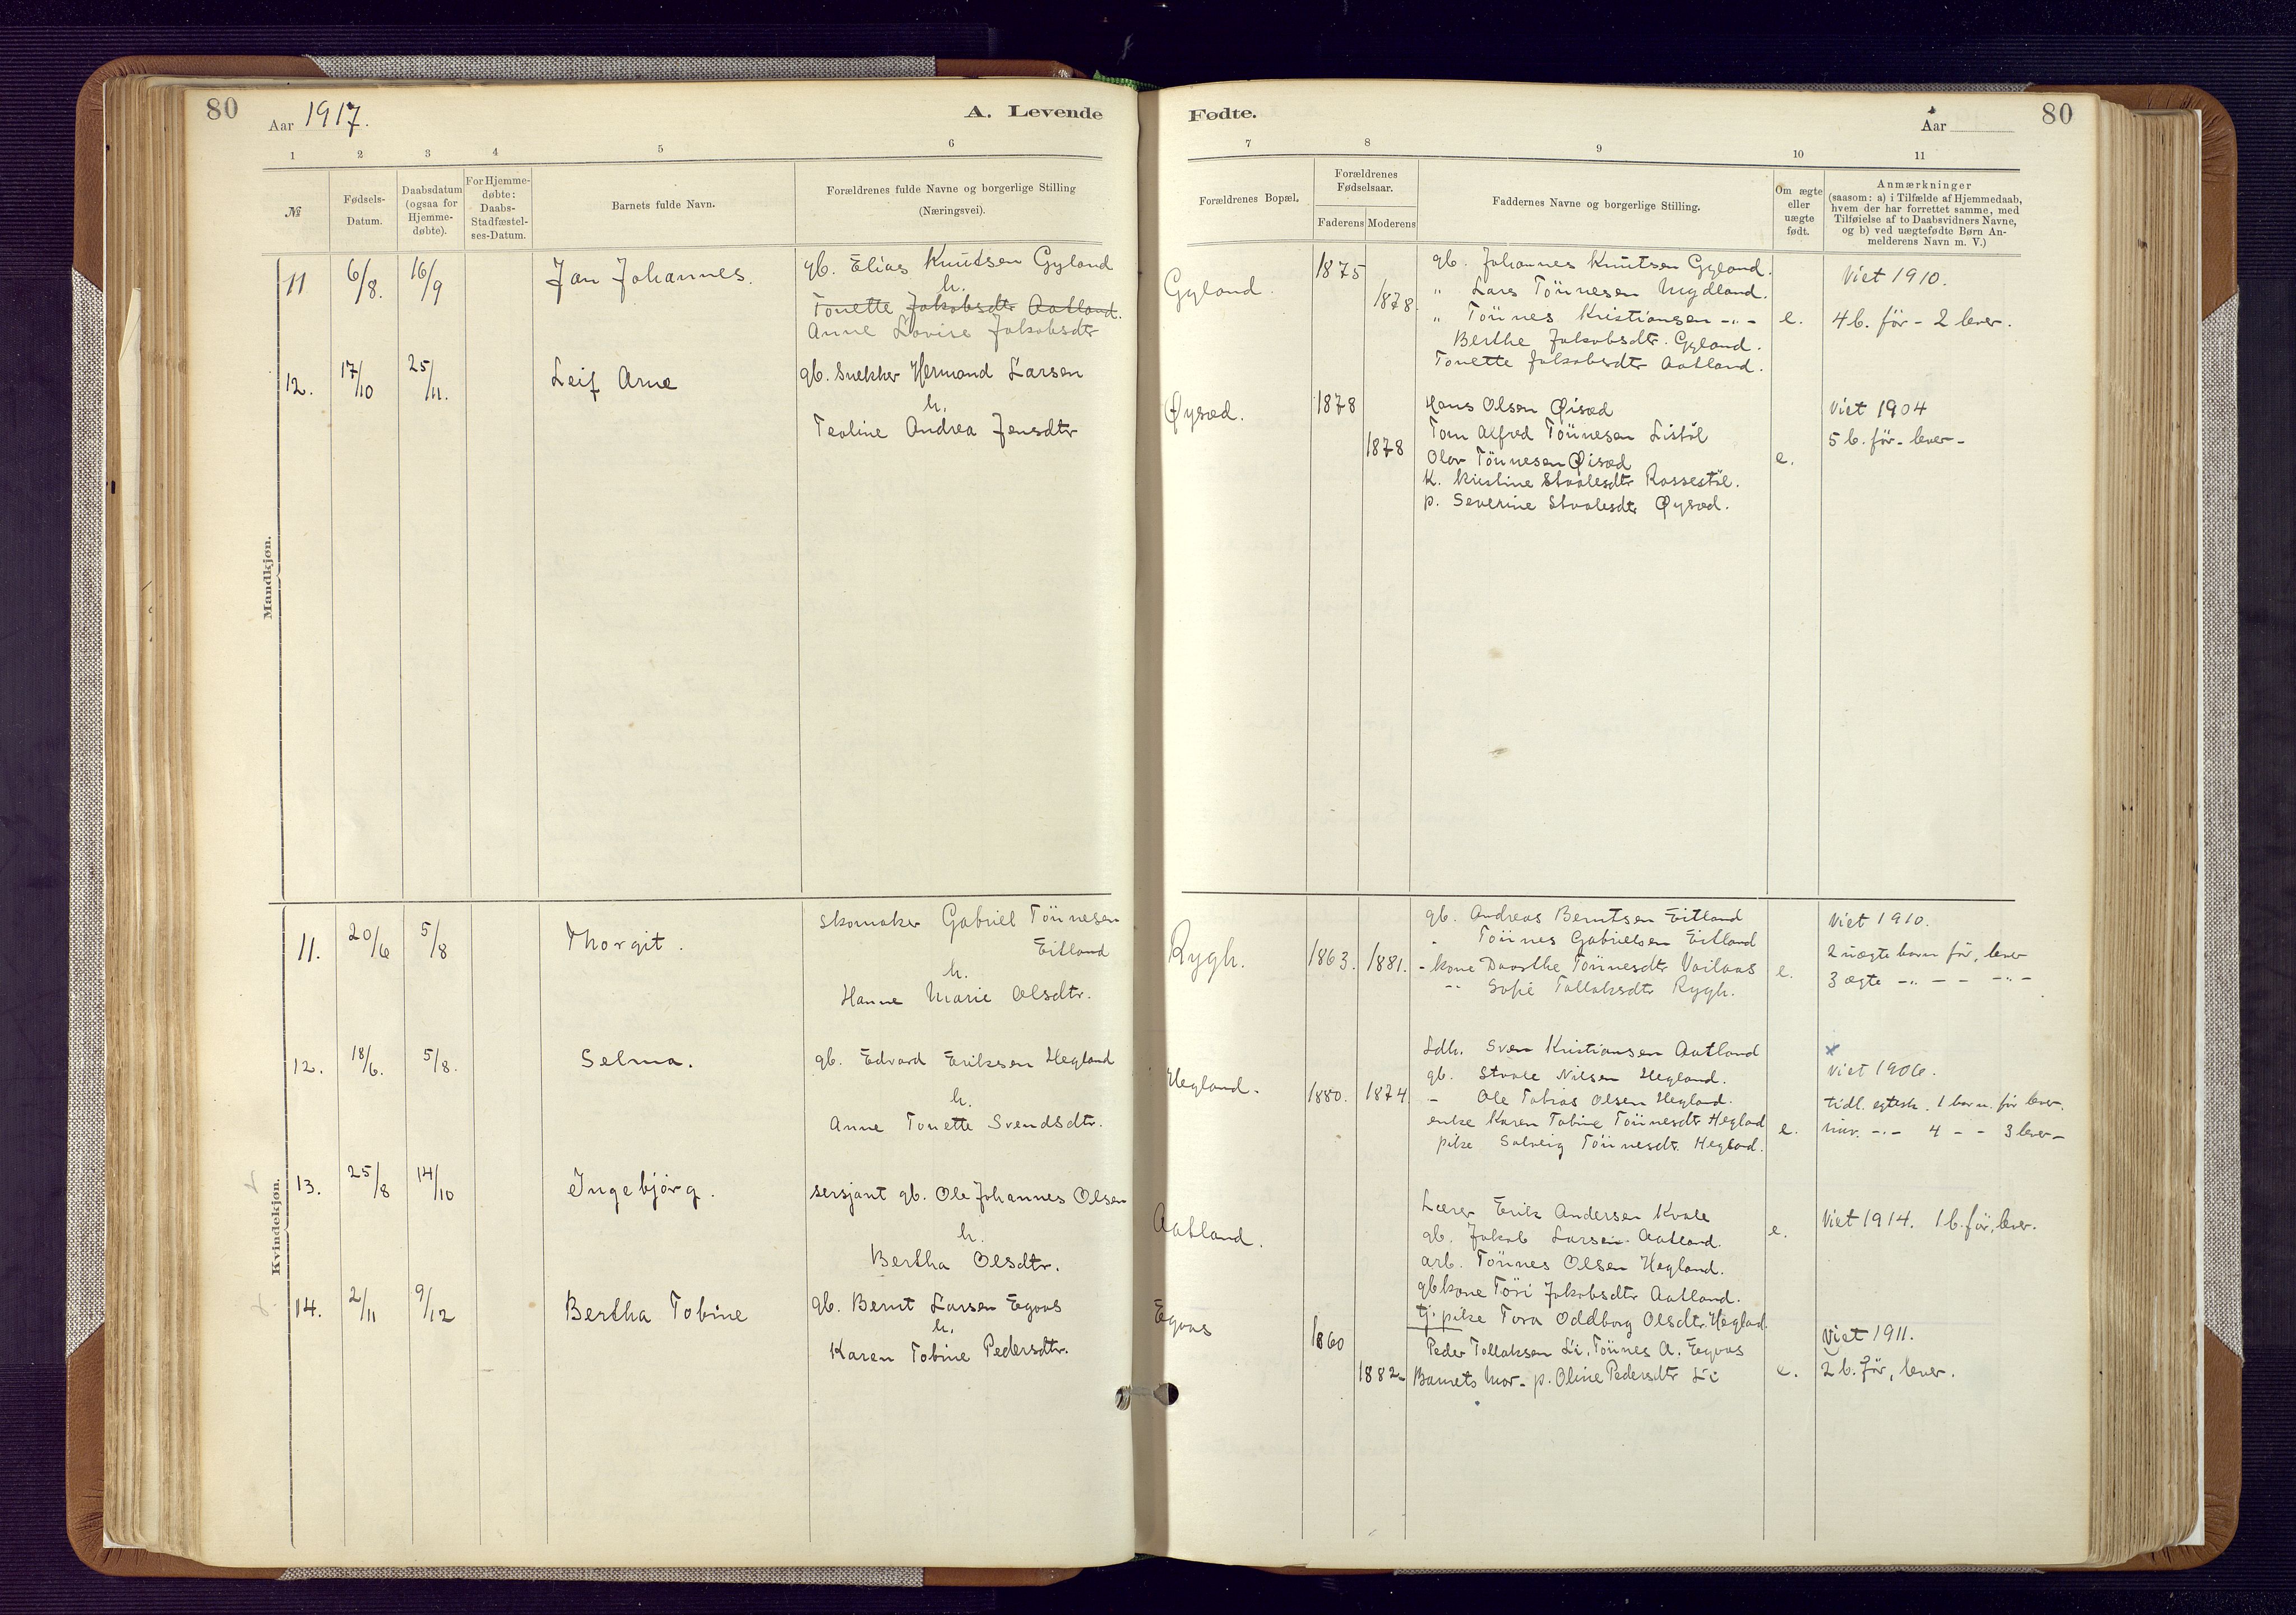 80
Aar 1917.
A. Levende
Fødte.
Aar
80
1
2
3
4
5
6
7
8
9
10
11
№
Fødsels-
Datum.
Daabsdatum
(ogsaa for
Hjemme-
døbte).
For Hjemme-
døbte:
Daabs-
Stadfæstel-
ses-Datum.
Barnets fulde Navn.
Forældrenes fulde Navne og borgerlige Stilling
(Næringsvei).
Forældrenes Bopæl.
Forældrenes
Fødselsaar.
Faderens
Moderens
Faddernes Navne og borgerlige Stilling.
Om ægte
eller
uægte
født.
Anmærkninger
(saasom: a) i Tilfælde af Hjemmedaab,
hvem der har forrettet samme, med
Tilføielse af to Daabsvidners Navne,
og b) ved uægtefødte Børn An-
melderens Navn m. V.)
Mandkjøn.
11
6/8.
16/9
Jan Johannes.
gb. Elias Knudsen Gyland
h.
Tonette Jakobsdtr Aatland.
Anne Lovise Jakobsdtr
Gyland.
1875
1878.
gb. Johannes Knutsen Gyland.
" Lars Tönnesen Mydland.
" Tönnes Kristiansen -"-
Berthe Jakobsdtr. Gyland.
Tonette Jakobsdtr Aatland.
e.
Viet 1910.
4 b. før - 2 lever.
12.
17/10
25/11.
Leif Arne
gb. Snekker Hermand Larsen
h.
Teoline Andrea Jensdtr
Øysæd.
1878
1878
Hans Olsen Øisæd
Tom Alfred Tönnesen Listöl
Olav Tönnesen Øisæd
K. Kristine Staalesdtr Rossestöl.
p. Severine Staalesdtr Øysæd.
e.
Viet 1904
5 b. før - lever -
Kvindekjøn.
11.
20/6
5/8
Thorgit.
skomaker Gabriel Tönnesen
Eitland
h.
Hanne Marie Olsdtr.
Rygh.
1863.
1881.
gb. Andreas Berntsen Eitland
" Tönnes Gabrielsen Eitland
- kone Dorthe Tönnesdtr
-"- Sofie Tollaksdtr Rygh.
e.
Viet 1910.
2 uægte barn før, lever
3 ægte -"- - - -"-
12.
18/6.
5/8.
Selma.
gb. Edvard Eriksen Hegland
h.
Anne Tonette Svendsdtr.
Hegland.
1880.
1874.
Ldh. Sven Kristiansen Aatland
gb. Staale Nilsen Hegland.
- Ole Tobias Olsen Hegland.
enke Karen Tobine Tönnesdtr Hegland
pike Solveig Tönnesdtr. Hegland.
e.
x
Viet 1906.
tidl. egtesk. 1 barn. før lever.
nuv. -"- 4 - - 3 lever -
13.
25/8
14/10
Ingebjörg.
sersjant gb. Ole Johannes Olsen
h.
Bertha Olsdtr.
Aatland.
Lærer Erik Andersen Kvale
gb. Jakob Larsen Aatland.
arb. Tönnes Olsen Hegland.
gbkone Töri Jakobsdtr Aatland.
tj. pike Tora Oddborg Olsdtr. Hegland.
e.
Viet 1914. 1 b. før, lever.
14.
2/11
9/12
Bertha Tobine
gb. Bernt Larsen Egaas
h.
Karen Tobine Pedersdtr.
Egaas
1860
1882
Peder Tollaksen Li, Tönnes A. Egaas
Barnets Mor - p. Oline Pedersdtr Li
e.
Viet 1911.
2 b. før, lever.